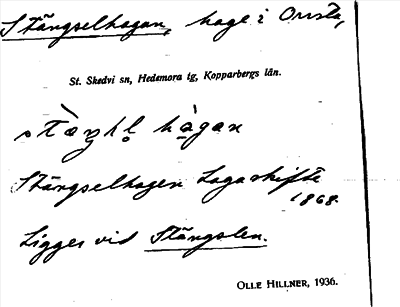 Stängselhagen, hage i Onsta,
St. Skedvi sn, Hedemora tg, Kopparbergs län.
hàgan
Stängselhagen Lagaskifte
1868.
Ligger vid Stängslen.
OLLE HILLNER, 1936.